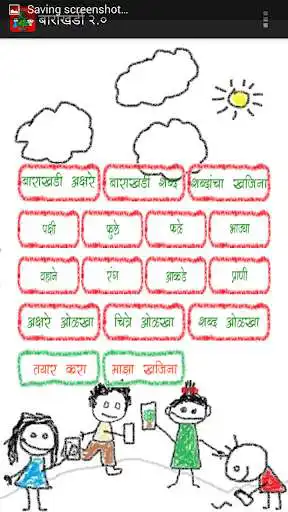 Saving screenshot...
बाराखडी २.०
बाराखडी अक्षरे बाराखडी शब्द शब्दांचा खजिना
पक्षी फुले फळे भाज्या
वहाने रंग आकडे प्राणी
अक्षरे ओळखा चित्रे ओळखा शब्द ओळखा
तयार करा माझा खजिना